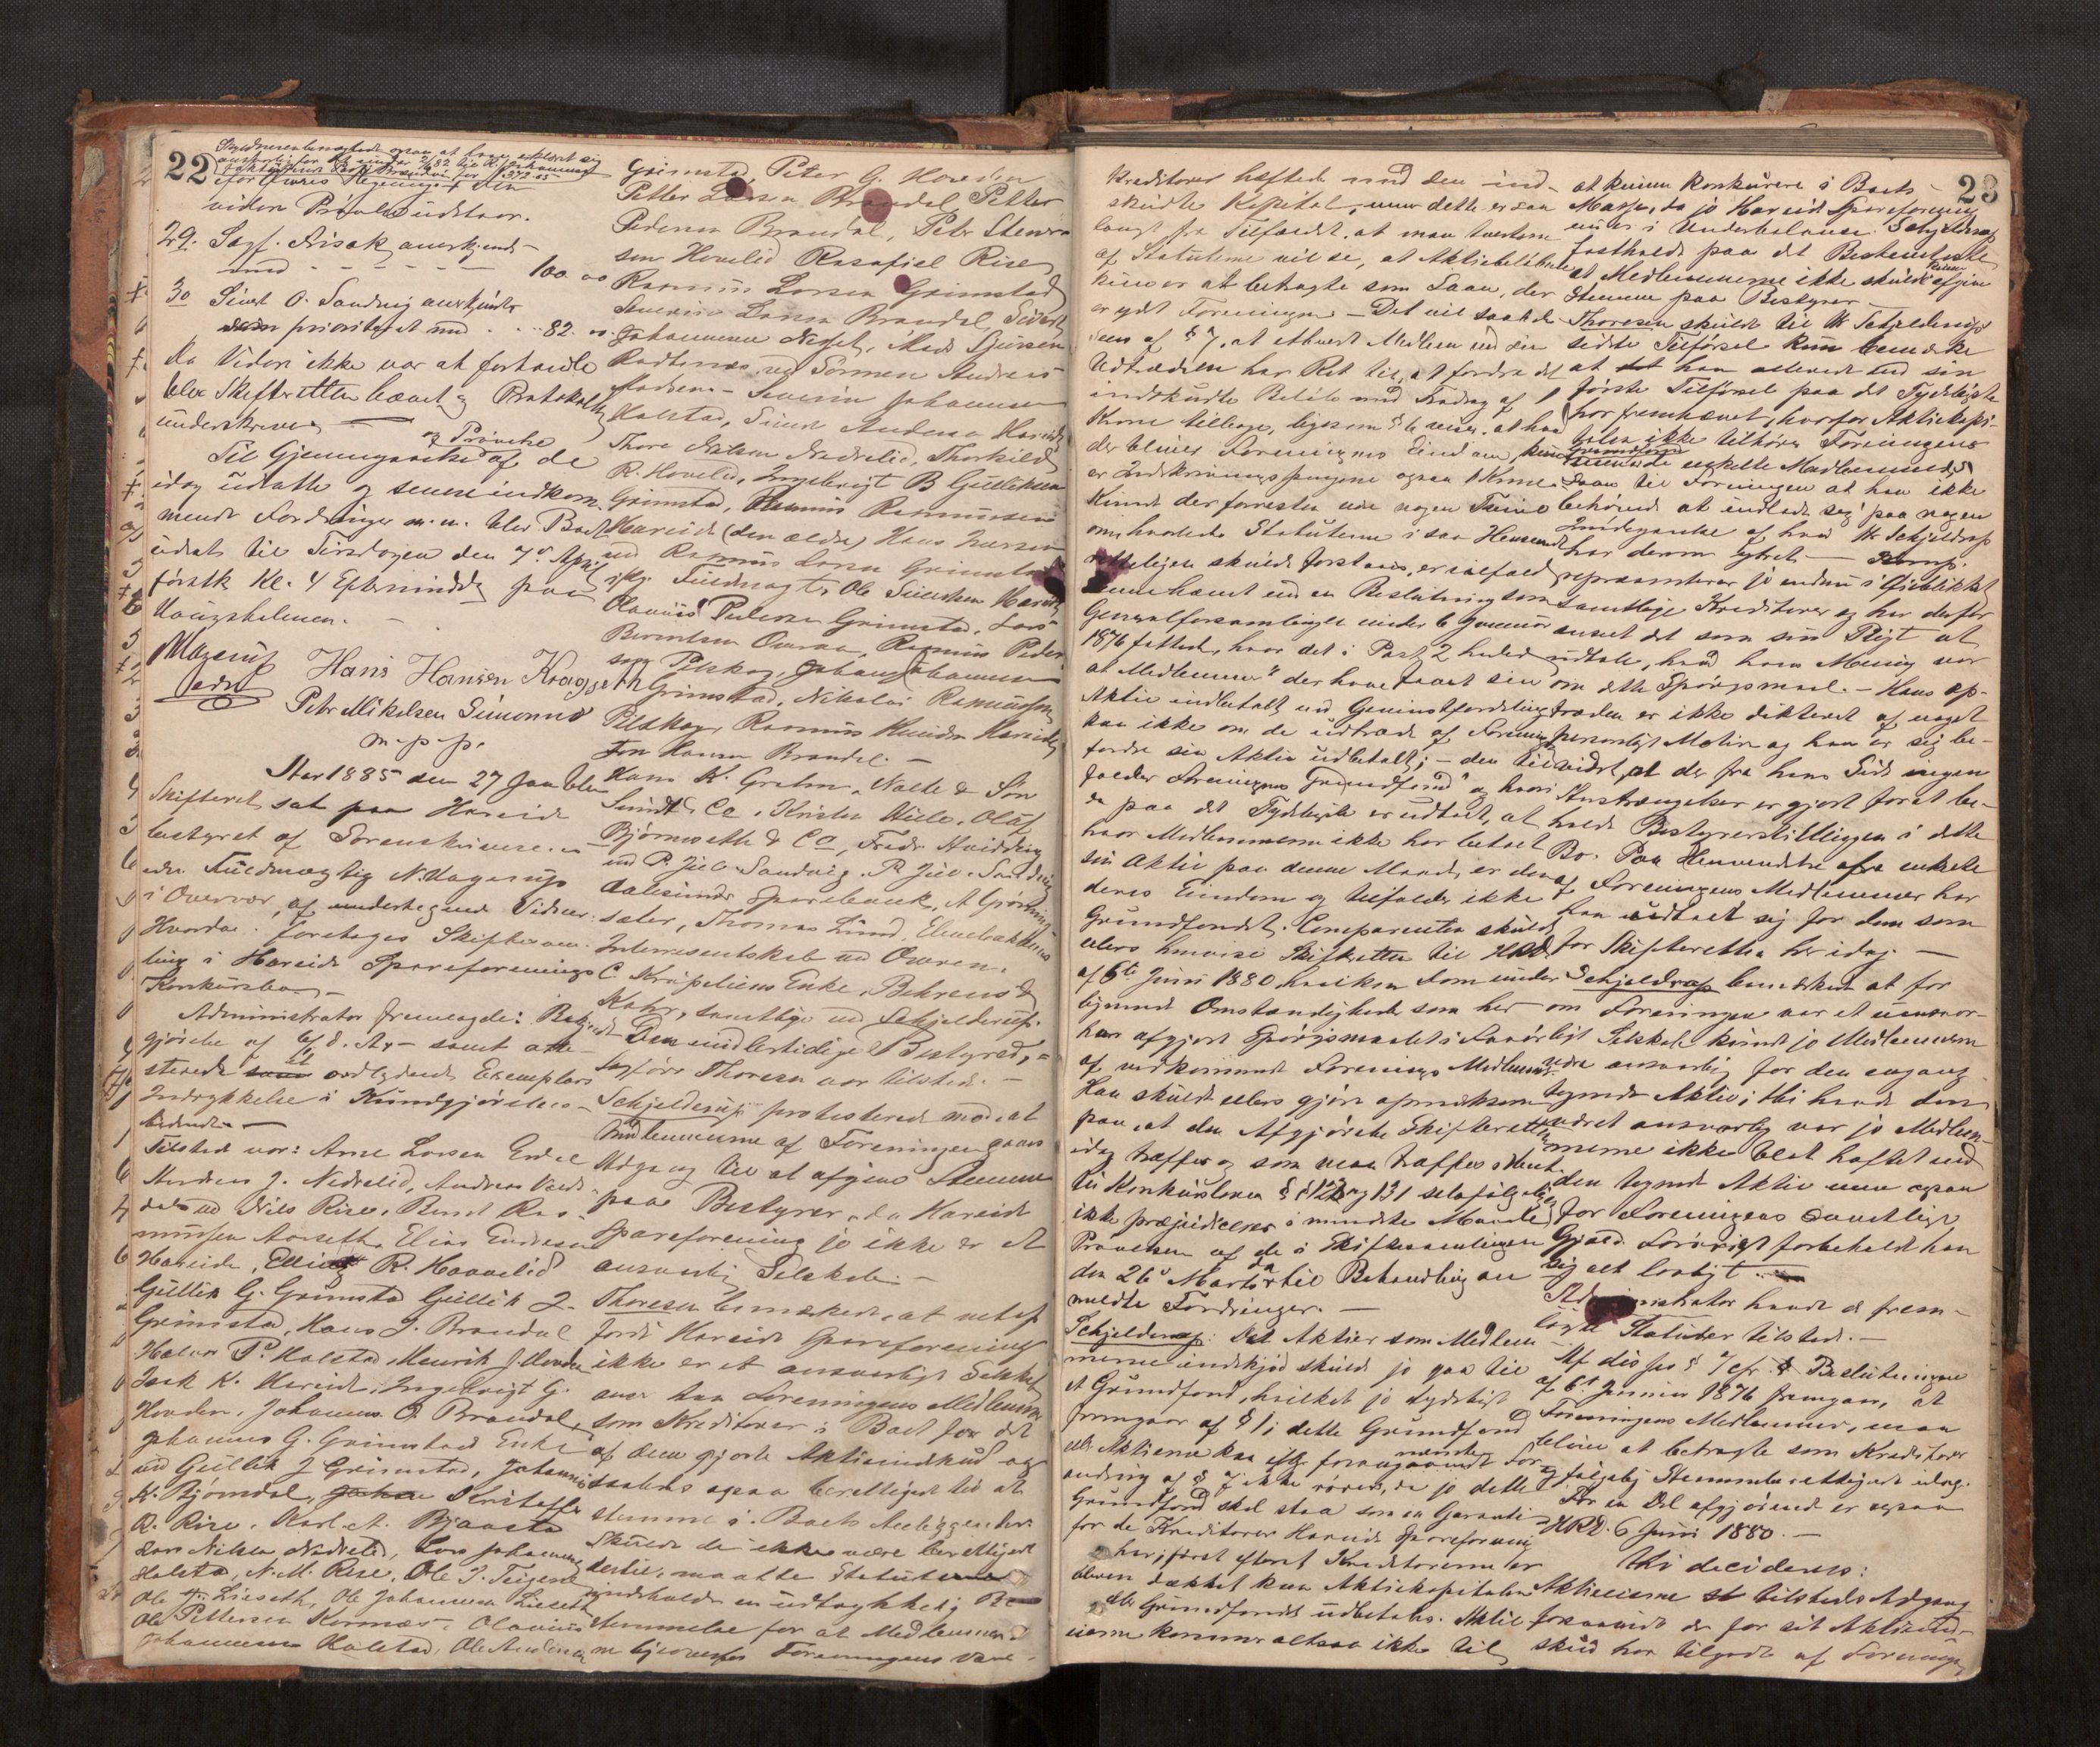 22
forøvrigt
viden Prøvelse udstaar.
29. Sagf. Aisak anerkjendt
med - - - - - 100.00
30 Sivert O. Sandvig anerkjendt
prioriteret med . . . 82.
Da Videre ikke var at forhandle
blev Skifteretten hævet og Protokollen
underskreven
og Prøvelse
Til Gjennemgaaelse af de
idag udsatte og senere indkom-
mende Fordringer m.m. blev Boet
udsat til Tirsdagen den 7de April
førstk Kl. 4 Eftermiddag paa
Haugsholmen.
Magerup
edsv
Hans Hansen Kragseth
Petr Mikelsen Gimonnes
m.p.p.
Aar 1885 den 27 Jan blev
Skifteret sat paa Hareide
bestyret af Sorenskriverens
eds. Fuldmægtig N. Magerup
i Overvær af undertegnede Vidner.
Hvorda foretoges Skiftesam-
ling i Hareids Spareforenings
Konkursbo
Administrator fremlagde: Bekjendt-
gjørelse af 6/8. Ar. samt atte-
sterede ordlydende Exemplarer
Indrykkelse i Kundgjørelses-
tidende
Tilstede var: Arne Larsen Eridal
Andreas J. Nedrelid, Andreas
ved Nils Rise, Bernt Ras-
mussen Aarseth, Elias Endresen
Hareide, Elling R. Hovelid
Gullik G. Grimstad Gullik J.
Grimstad, Hans J. Brandal
Halvor P. Halstad Henrik J. Hovden
Isak K. Hareide, Ingebrigt G.
Hovden, Johannes O. Brandal,
Johannes G. Grimstad Enke
ved Gullik J Grimstad, Johannes
K. Bjørndal, Kristoffer
R. Rise. Karl A. Bjaastad
Lars Nilsen Nedrelid, Lars Johannes
Halstad, N. M. Rise, Ole I. Teigene
Ole H. Liaseth, Ole Johannesen Liaseth
Ole Pettersen Kornæs, Olavius
Johannesen Halstad, Ole Andersen
Grimstad, Peter G. Hovden
Petter Larsen Brandal, Petter
Pedersen Brandal, Petr Stenersen
Hovelid Rasafiel Rise
Rasmus Larsen Grimstad
Severin Larsen Brandal, Sivert
Johannesen Nesset, Mads Sjursen
Rødsnæs, ved Sønnen Andreas
Madsen. - Severin Johannesen
Halstad, Sivert Andersen Hareide
Thore Nilsen Nedrelid, Thorkild
R. Hovelid, Ingebrigt B Gulliksen
Grimstad, Rasmus Rasmussen
Hareide (den ældre) Hans Iversen
ved Rasmus Larsen Grimstad
iflg. Fuldmagt, Ole Sivertsen Hareide
Olavius Pedersen Grimstad, Lars
Berentsen Overaa, Rasmus Peder-
sen Pilskog, Johan Johannesen
Grimstad, Nikolai Rasmussen
Pilskog, Rasmus Knudsen Hareide
Jon Hansen Brandal. -
Hans K. Grehn, Nolte & Søn
Smidt & Co, Krister Wiele. Olaf
Bjørnseth & Co, Fredr Hvidding
ved P. Juel Sandvig. P. Juel. Sandvig
Aalesunds Sparebank, A Grønnings-
sæter, Thomas Lund,
Interessentskab ved Overen.
C Krøpeliens Enke, Behrens &
Kahrs, samtlige ved Schjelderup.
Den midlertidige Bestyrer,
Sagfører Thoresen var tilstede. -
Schjelderup protesterede mod, at
Medlemmerne af Foreningen gaves
Adgang til at afgive Stemme
paa Bestyrer, da Hareids
Spareforening jo ikke er et
ansvarlig Selskab. -
Thoresen bemærkede, at netop
fordi Hareids Spareforening
ikke er et ansvarligt Selskab
anser han Foreningens Medlemmer
som Kreditorer i Boet for det
af dem gjorte Aktieindskud og
saaledes ogsaa berettiget til at
stemme i Boets Anliggender.
Skulde de ikke være berettiget
dertil, maatte Statuterne
indeholde en udtrykkelig Be-
stemmelse for at Medlemmer-
ne ligeoverfor Foreningens Vær-
Kreditorer hæftede med den ind-
skudte Kapital; men dette er saa
langt fra Tilfældet, at man tvertom
af Statuterne vil se, at Aktiebeløbene
kun er at betragte som Laan, der
er ydet Foreningen - Det vil saaledes
sees af § 7, at ethvert Medlem ved sin
Udtrædelse har Ret til, at fordre det
indskudte Beløb med Fradrag af 1
Krone tilbage, ligesom § 6 viser, at hvad
der bliver Foreningens Eiendom kun
er Indskrivningspengene ogsaa 1 Krone.
Kunde der forresten være nogen Tvivl
om hvorledes Statuterne i saa Henseende
rettelligen skulde forstaaes, er ialfald
denne hævet ved en Beslutning som
Generalforsamlingen under 6 Januar
1876 fattede, hvor det i Post 2 heder
at Medlemmer "der have faaet sin
Aktie indbetalt ved Gevinstfordeling
kan ikke om de udtræde af Foreningen
fordre sin Aktie udbetalt; - den til-
falder Foreningens Grundfond" og hvori
da paa det Tydeligste er udtalt, at
hvor Medlemmerne ikke har betalt
sin Aktie paa denne Maade, er den
deres Eiendom og tilfalder ikke
Grundfondet. Comparenten skulde
ellers henvise Skifteretten til HRD
af 6te Juni 1880 hvilken Dom under
lignende Omstændigheder som her
har afgjort Spørgsmaalet i Favør
af vedkommende Forenings Medlemmer.
Han skulde ellers gjøre opmærksom
paa, at den Afgjørelse Skifteretten
idag træffer og som man træffer i Hen.
til Konkursloven §§ 123 og 131 selvfølgelig
ikke præjudicerer i mindste Maade
Prøvelsen af de i Skiftesamlingen
den 26de Marts til Behandling an-
meldte Fordringer. -
Schjelderup: De Aktier som Medlem-
merne indskjød skulde jo gaa til
et Grundfond, hvilket jo tydeligt
fremgaar af § 1; dette Grundfond
eller Aktierne kan efter foran nævnte For-
andring af § 7 ikke røres, da jo dette
Grundfond skal staa som en Garanti
for de Kreditorer Hareids Spareforening
har, først efterat Kreditorerne er
bleven dækket kan Aktiekapitalen
eller Grundfondet udbetales. Aktie-
eierne kommer altsaa ikke til
23
at kunne konkurere i Boets
Masse, da jo Hareids Spareforening
er i Underbalance. Schjelderup
fastholdt paa det Bestemteste
at Medlemmerne ikke skulde kunne afgive
Stemme paa Bestyrer -
Thoresen skulde til Hr Schjelderups
sidste Tilførsel kun bemærke
at han allerede ved sin
første Tilførsel paa det Tydeligste
har fremhævet, hvorfor Aktiekapi-
talen ikke tilhører Foreningens
Grundfond
men er de enkelte Medlemmers
Laan til Foreningen at han ikke
behøvede at indlade sig paa nogen
Imødegaaelse af hvad Hr Schjelderup
har derom ytret - Komp.
repræsenterer jo endnu i Øieblikket
samtlige Kreditorer og har derfor
anseet det som sin Pligt at
udtale, hvad hans Mening var
om dette Spørgsmaal. - Hans Op-
træden er ikke dikteret af noget
personligt Motiv og han er sig be-
vidst, at der fra hans Side ingen
Anstrengelser er gjort for at be-
holde Bestyrerstillingen i dette
Bo. Paa Henvendelse fra enkelte
af Foreningens Medlemmer har
han udtalt sig for dem som
for Skifteretten her idag. -
Schjelderup bemærkede at for
om Foreningen var et uansvar-
ligt Selskab kunde jo Medlemmerne
være ansvarlig for den engang
tegnede Aktie; thi havde den
været ansvarlig var jo Medlem-
merne ikke blot hæftet med
den tegnede Aktie men ogsaa
for Foreningens samtlige
Gjæld. Forøvrigt forbeholdt han
sig alt lovligt.
Administrator havde de frem-
lagte Statuter tilstede. -
Af disses § 7 cfr. Beslutningen
af 6te Januar 1876 fremgaar, at
Foreningens Medlemmer, maa
blive at betragte som Kreditorer
og følgelig Stemmeberettigede idag.
For en Del afgjørende er ogsaa
HRD. 6 Juni 1880. -
Thi decideres:
Aktieeierne tilstedes Adgang
forsaavidt de for sit Aktieind-
skud har tilgode af Foreningen